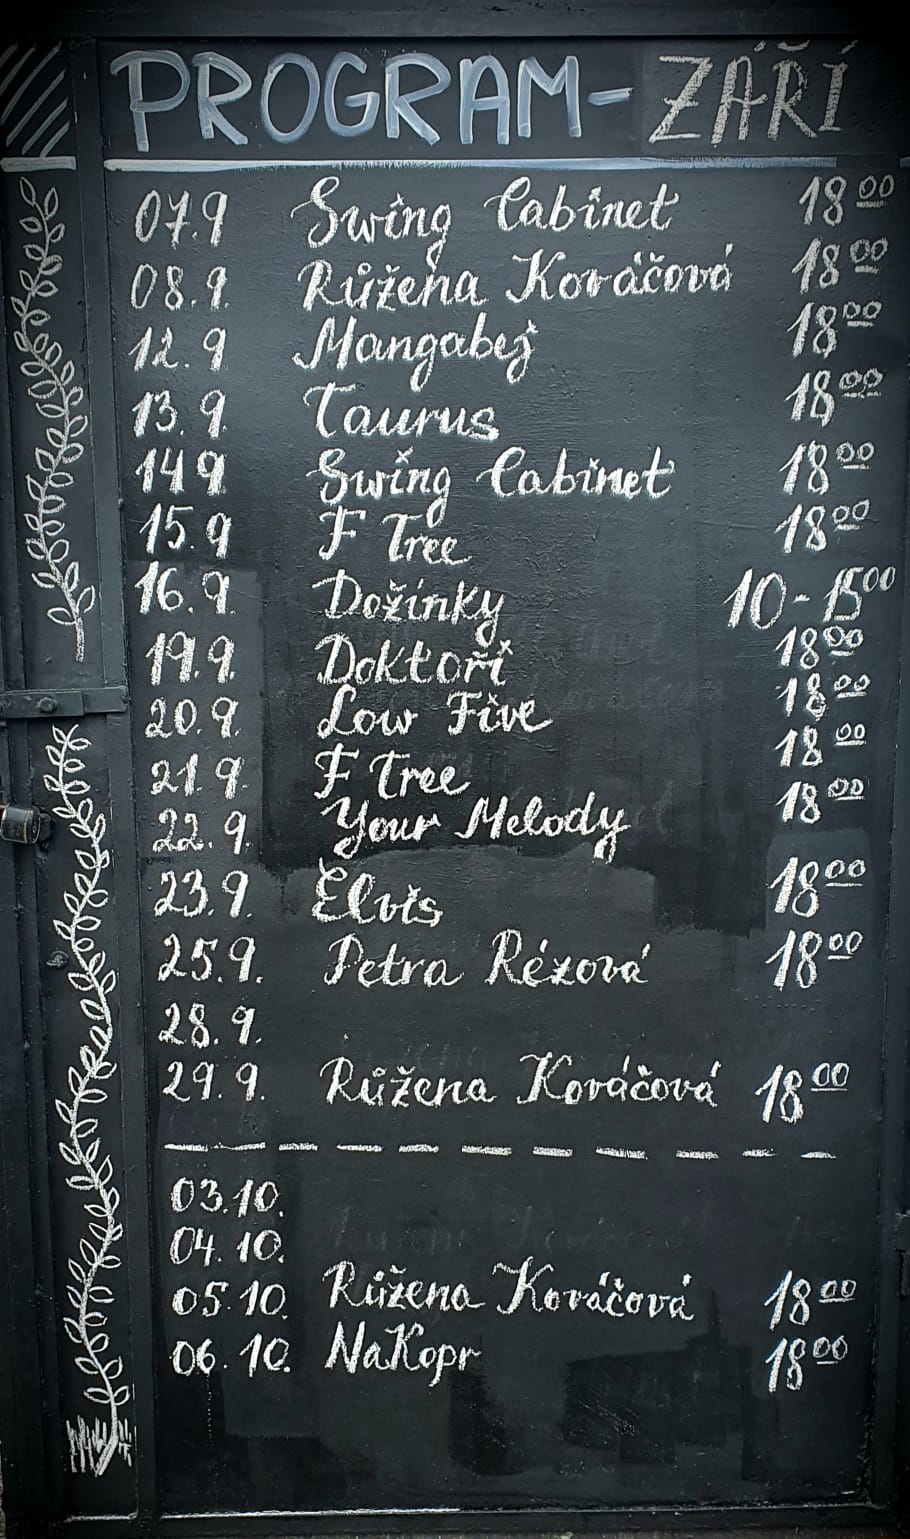 PROGRAM - ZÁŘÍ
07.9 Swing Cabinet 18⁰⁰
08.9. Růžena Kováčová 18⁰⁰
12.9 Mangabej 18⁰⁰
13.9. Taurus 18⁰⁰
14 9. Swing Cabinet 18⁰⁰
15.9 F Tree 18⁰⁰
16.9. Dožínky 10 - 15⁰⁰
19.9. Doktoři 18⁰⁰
20.9. Low Five 18⁰⁰
21.9. F Tree 18⁰⁰
22.9. Your Melody 18⁰⁰
23.9. Elvis 18⁰⁰
25.9. Petra Rézová 18⁰⁰
28.9.
29.9. Růžena Kováčová 18⁰⁰
03.10.
04.10.
05.10. Růžena Kováčová 18⁰⁰
06.10. NaKopr 18⁰⁰